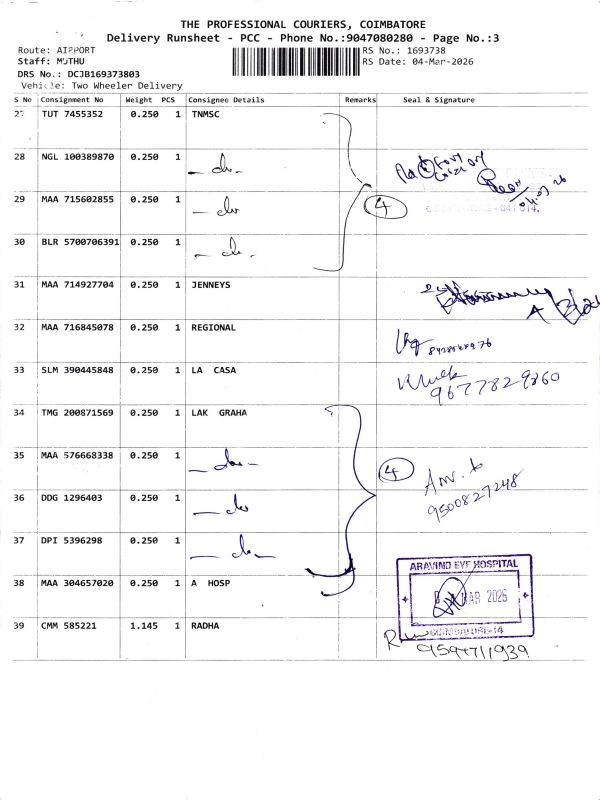 THE PROFESSIONAL COURIERS, COIMBATORE
Delivery Runsheet - PCC - Phone No.:9047080280 - Page No.:3
Route: AIRPORT
RS No.: 1693738
Staff: MUTHU
RS Date: 04-Mar-2026
DRS No.: DCJB169373803
Vehicle: Two Wheeler Delivery
S No Consignment No Weight PCS Consignee Details Remarks Seal & Signature
27 TUT 7455352 0.250 1 TNMSC
28 NGL 100389870 0.250 1 - do -
29 MAA 715602855 0.250 1 - do
4
30 BLR 5700706391 0.250 1 - do -
31 MAA 714927704 0.250 1 JENNEYS
32 MAA 716845078 0.250 1 REGIONAL
33 SLM 390445848 0.250 1 LA CASA
9677829860
34 TMG 200871569 0.250 1 LAK GRAHA
35 MAA 576668338 0.250 1 - do -
4
36 DDG 1296403 0.250 1 - do
9500827248
37 DPI 5396298 0.250 1 - do -
ARAVIND EYE HOSPITAL
38 MAA 304657020 0.250 1 A HOSP
MAR 2026
COIMBATORE-14
39 CMM 585221 1.145 1 RADHA